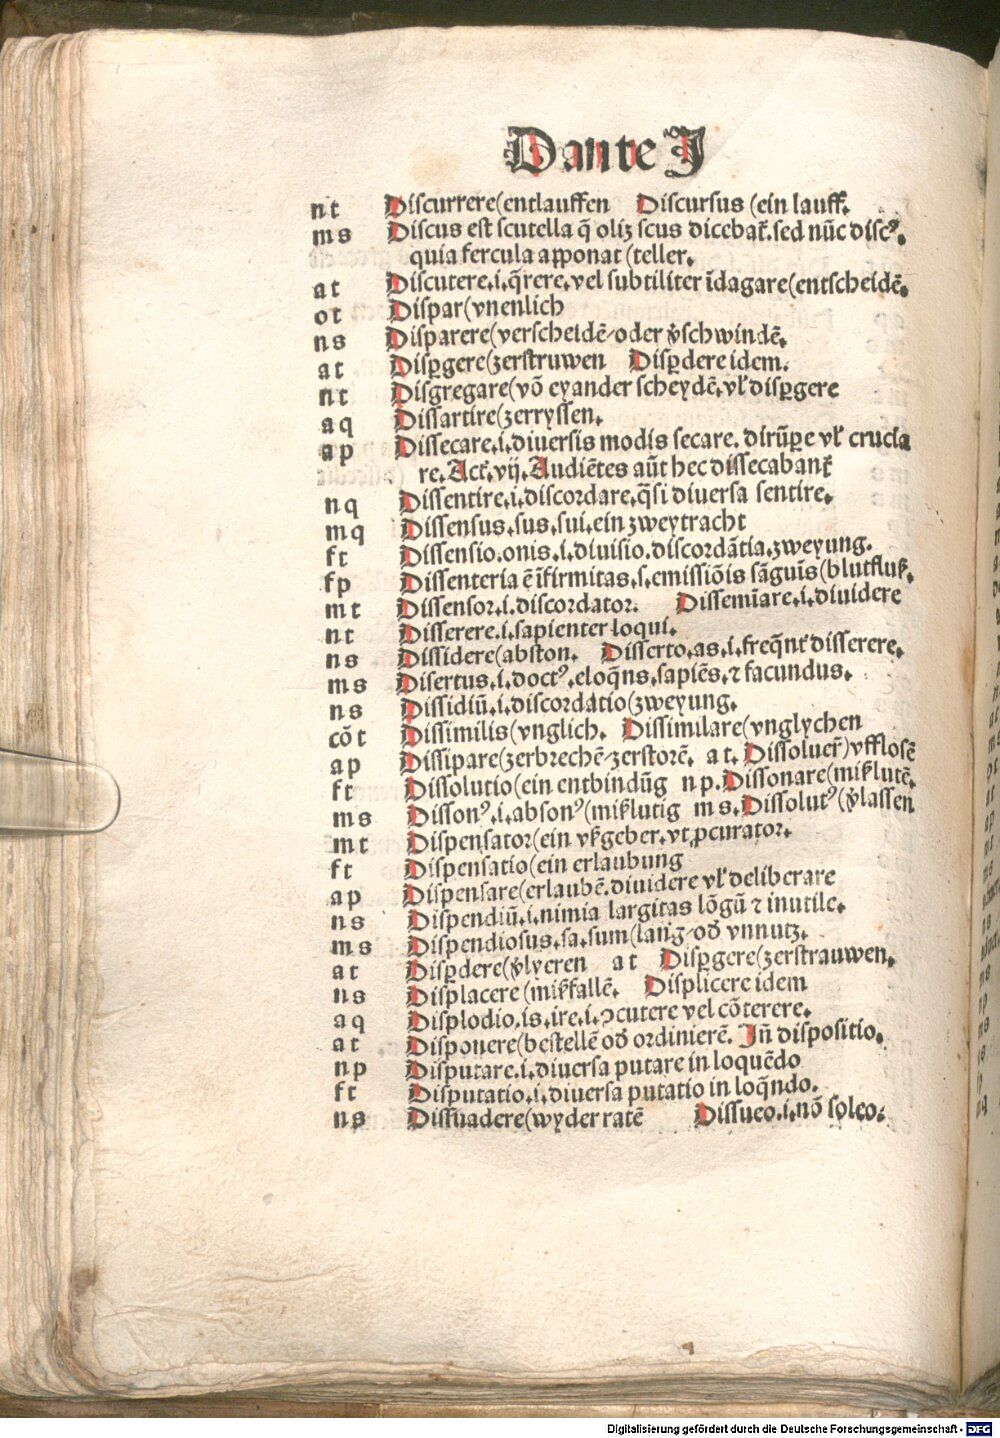 Dante J
nt Discurrere(entlauffen Discursus (ein lauff.
ms Discus est scutella q̄ oliʒ scus dicebat̄. sed nūc discꝰ.
quia fercula apponat (teller.
at Discutere.i.q̄rere.vel subtiliter īdagare(entscheidē.
ot Dispar(vnenlich
ns Disparere(verscheidē/oder v̄schwindē.
at Disꝑgere(zerstruwen Disꝑdere idem.
nt Disgregare(vō eyander scheydē.vl̄ disꝑgere
aq Dissartire(zerryssen.
ap Dissecare.i.diuersis modis secare. dirūꝑe vl̄ crucia
re.Act̄.vij.Audiētes aūt hec dissecabant̄
nq Dissentire.i.discordare.q̄si diuersa sentire.
mq Dissensus.sus.sui.ein zweytracht
ft Dissensio.onis.i.diuisio.discordātia.zweyung.
fp Dissenteria ē īfirmitas.s.emissiōis sāguīs(blutfluß.
mt Dissensor.i.discordator. Dissemīare.i.diuidere
nt Disserere.i.sapienter loqui.
ns Dissidere(abston. Disserto.as.i.freq̄nt̄ disserere.
ms Disertus.i.doctꝰ.eloq̄ns.sapiēs.⁊ facundus.
ns Dissidiū.i.discordatio(zweyung.
cōt Dissimilis(vnglich. Dissimilare(vnglychen
ap Dissipare(zerbrechē/zerstorē. at. Dissoluer̄)vfflosē
ft Dissolutio(ein entbindūg np. Dissonare(mißlutē.
ms Dissonꝰ.i.absonꝰ(mißlutig ms. Dissolutꝰ(v̄lassen
mt Dispensator(ein vßgeber.vt ꝓcurator.
ft Dispensatio(ein erlaubung
ap Dispensare(erlaubē.diuidere vl̄ deliberare
ns Dispendiū.i.nimia largitas lōgū ⁊ inutile.
ms Dispendiosus.sa.sum(lang/od̄ vnnutz.
at Disꝑdere(v̄lyeren at Disꝑgere(zerstrauwen.
ns Displacere(mißfallē. Displicere idem
aq Displodio.is.ire.i.ↄcutere vel cōterere.
at Disponere(bestellē od̄ ordinierē. Jn̄ dispositio.
np Disputare.i.diuersa putare in loquēdo
ft Disputatio.i.diuersa putatio in loq̄ndo.
ns Dissuadere(wyder ratē Dissueo.i.nō soleo.
Digitalisierung gefördert durch die Deutsche Forschungsgemeinschaft - DFG